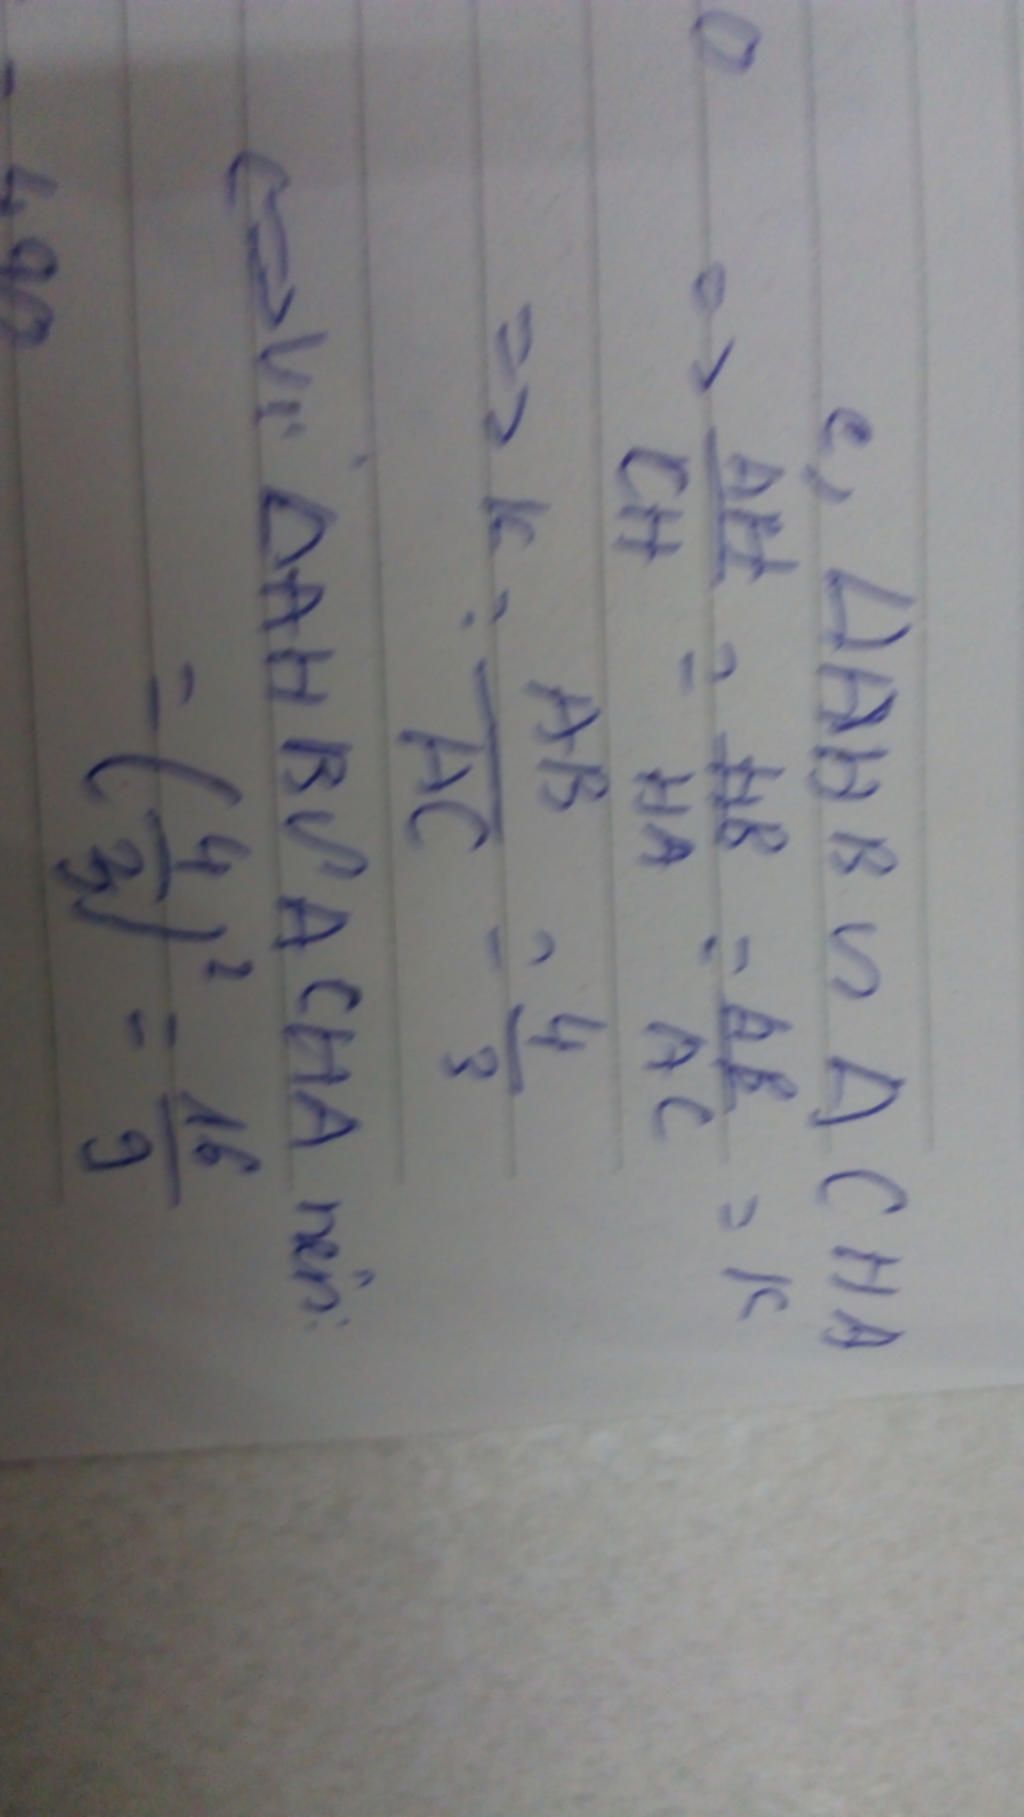 c, ΔAHB ∽ ΔCHA
0 => AH/CH = HB/HA = AB/AC = k
=> k = AB/AC = 4/3
=> Vì ΔAHB ∽ ΔCHA nên:
= (4/3)² = 16/9
- 490